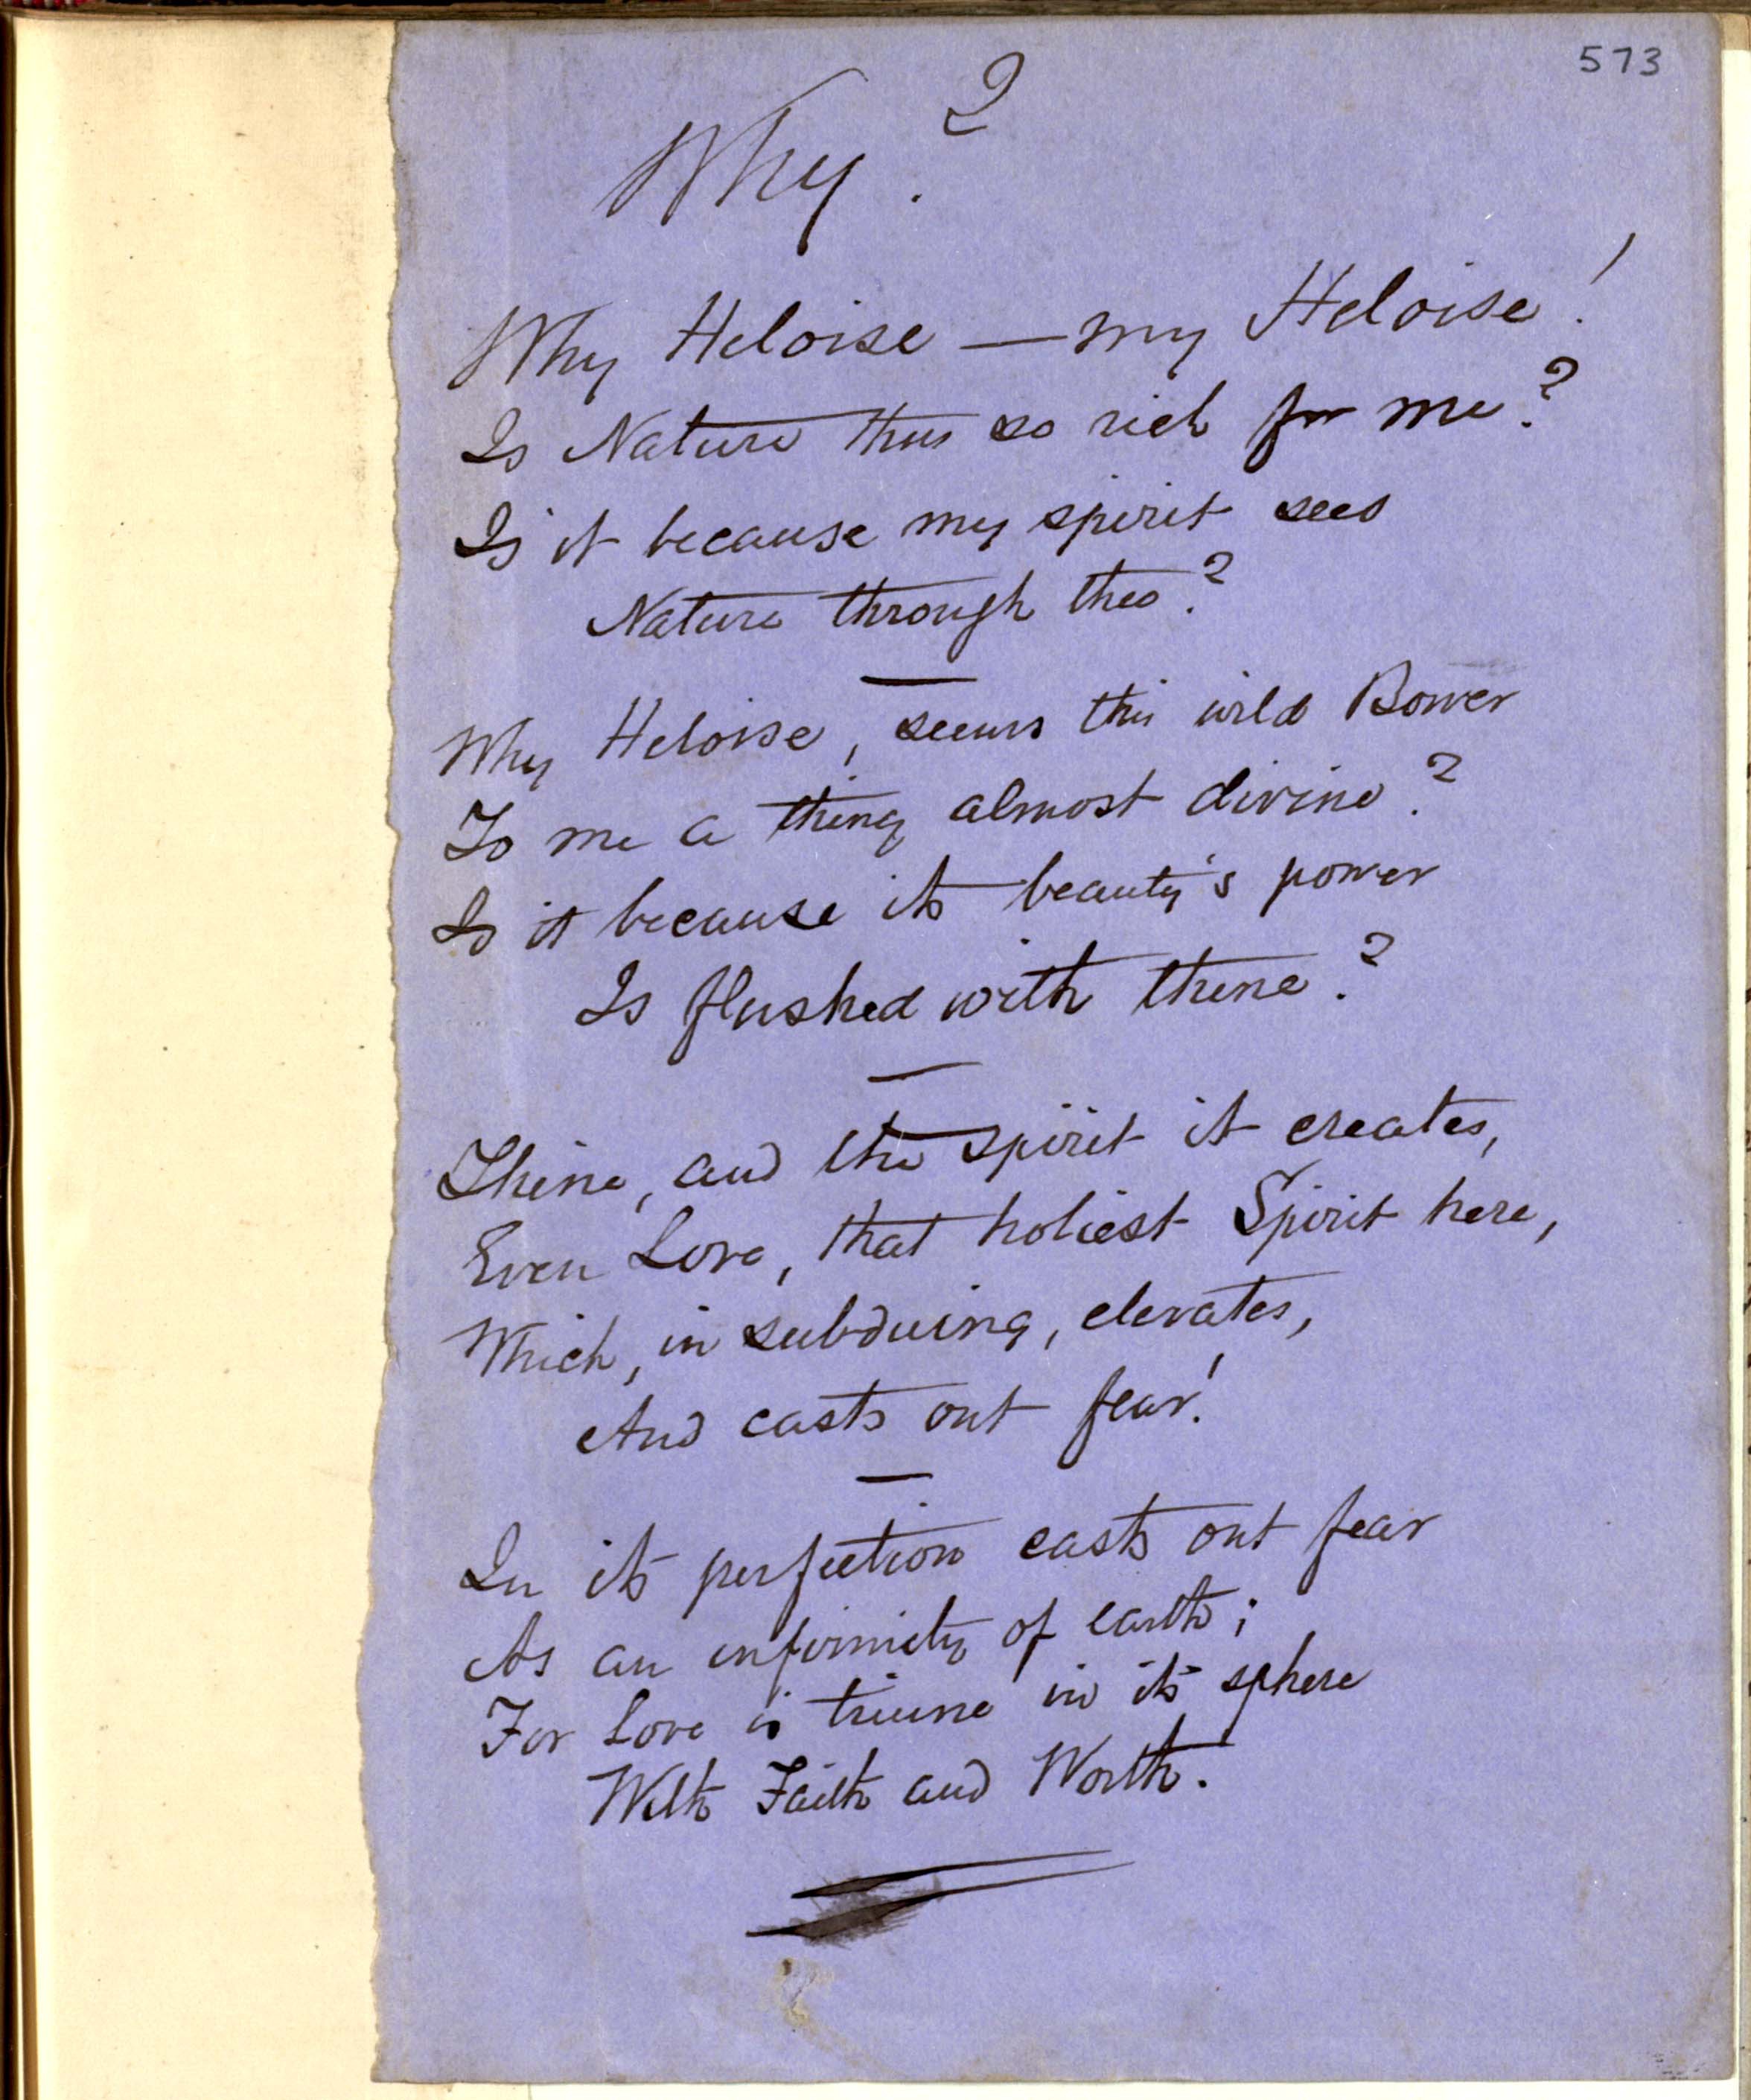 573
Why?
Why Heloise — my Heloise!
Is Nature thus so rich for me?
Is it because my spirit sees
Nature through thee?
Why Heloise, seems this wild Bower
To me a thing almost divine?
Is it because its beauty's power
Is flushed with thine?
Thine, and the spirit it creates,
Even Love, that holiest Spirit here,
Which, in subduing, elevates,
And casts out fear!
In its perfection casts out fear
As an infirmity of earth;
For Love is triune in its sphere
With Faith and Worth.